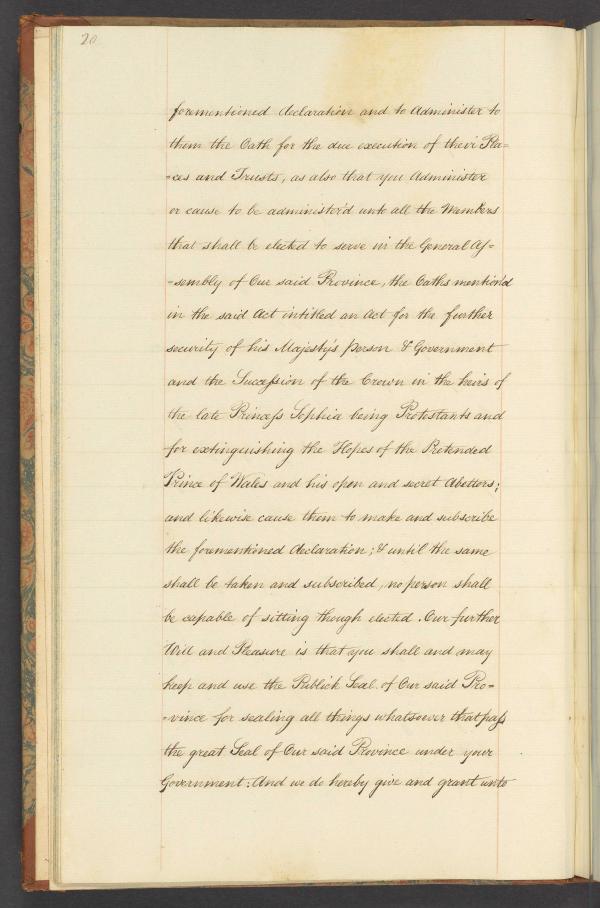 20
forementioned declaration and to administer to
them the Oath for the due execution of their Pla=
=ces and Trusts, as also that you Administer
or cause to be administer'd unto all the Members
that shall be elected to serve in the General As=
=sembly of Our said Province, the Oaths mention'd
in the said Act intitled an Act for the further
security of his Majesty's Person & Government
and the Succession of the Crown in the heirs of
the late Princess Sophia being Protestants and
for extinguishing the Hopes of the Pretended
Prince of Wales and his open and secret Abettors;
and likewise cause them to make and subscribe
the forementioned declaration; & until the same
shall be taken and subscribed, no person shall
be capable of sitting though elected. Our further
Will and Pleasure is that you shall and may
keep and use the Publick Seal of Our said Pro=
=vince for sealing all things whatsoever that pass
the great Seal of Our said Province under your
Government: And we do hereby give and grant unto